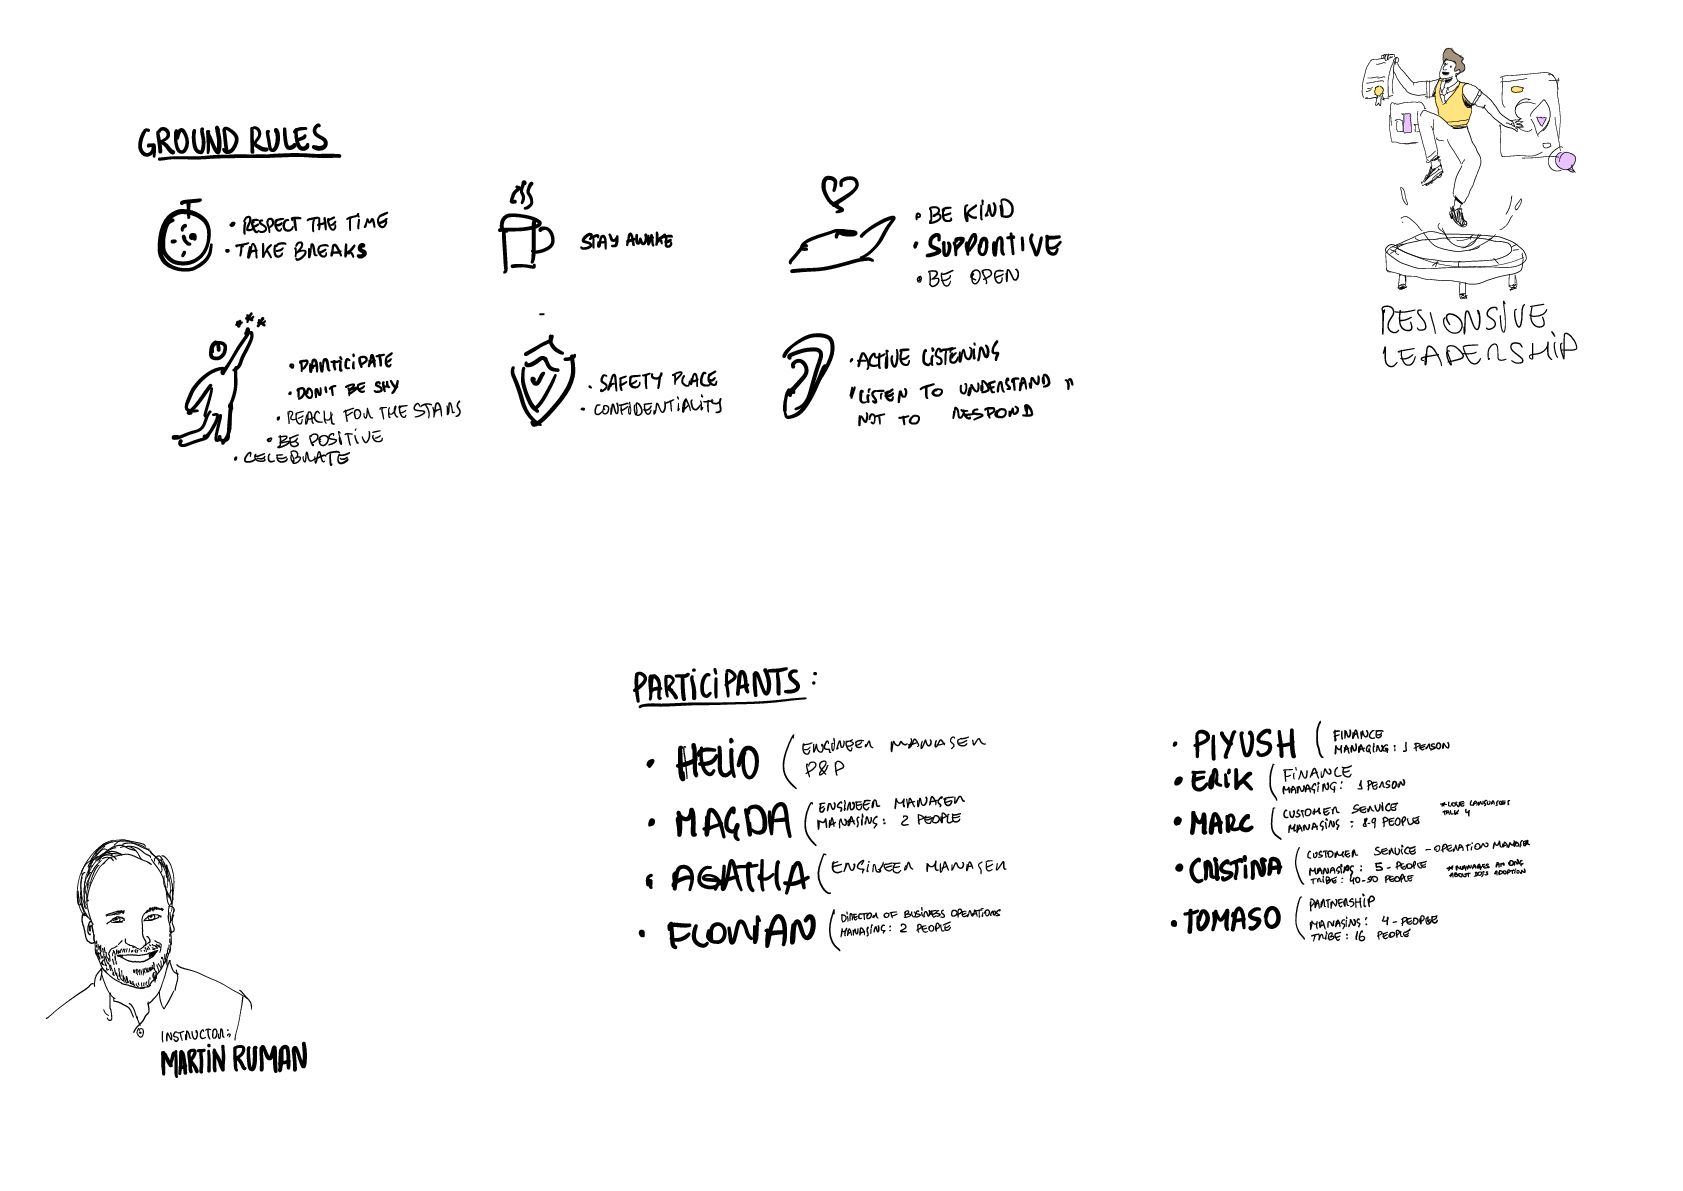 GROUND RULES
• RESPECT THE TIME
• TAKE BREAKS
STAY AWAKE
• BE KIND
• SUPPORTIVE
• BE OPEN
• PARTICIPATE
• DON'T BE SHY
• REACH FOR THE STARS
• BE POSITIVE
• CELEBRATE
• SAFETY PLACE
• CONFIDENTIALITY
• ACTIVE LISTENING
"LISTEN TO UNDERSTAND"
NOT TO RESPOND
RESIONSIVE
LEADERSHIP
PARTICIPANTS:
• HELIO (ENGINEER MANAGER
P&P
• MAGDA (ENGINEER MANAGER
MANAGING: 2 PEOPLE
• AGATHA (ENGINEER MANAGER
• FLORIAN (DIRECTOR OF BUSINESS OPERATIONS
MANAGING: 2 PEOPLE
• PIYUSH (FINANCE
MANAGING: 1 PERSON
• ERIK (FINANCE
MANAGING: 1 PERSON
• MARC (CUSTOMER SERVICE
MANAGING: 8-9 PEOPLE
*LOVE LANGUAGES
TALK 4
• CRISTINA (CUSTOMER SERVICE - OPERATION MANAGER
MANAGING: 5 - PEOPLE
TRIBE: 40-50 PEOPLE
*MANAGES AN ONG
ABOUT DOGS ADOPTION
• TOMASO (PARTNERSHIP
MANAGING: 4 - PEOPLE
TRIBE: 16 PEOPLE
INSTRUCTOR:
MARTIN RUMAN